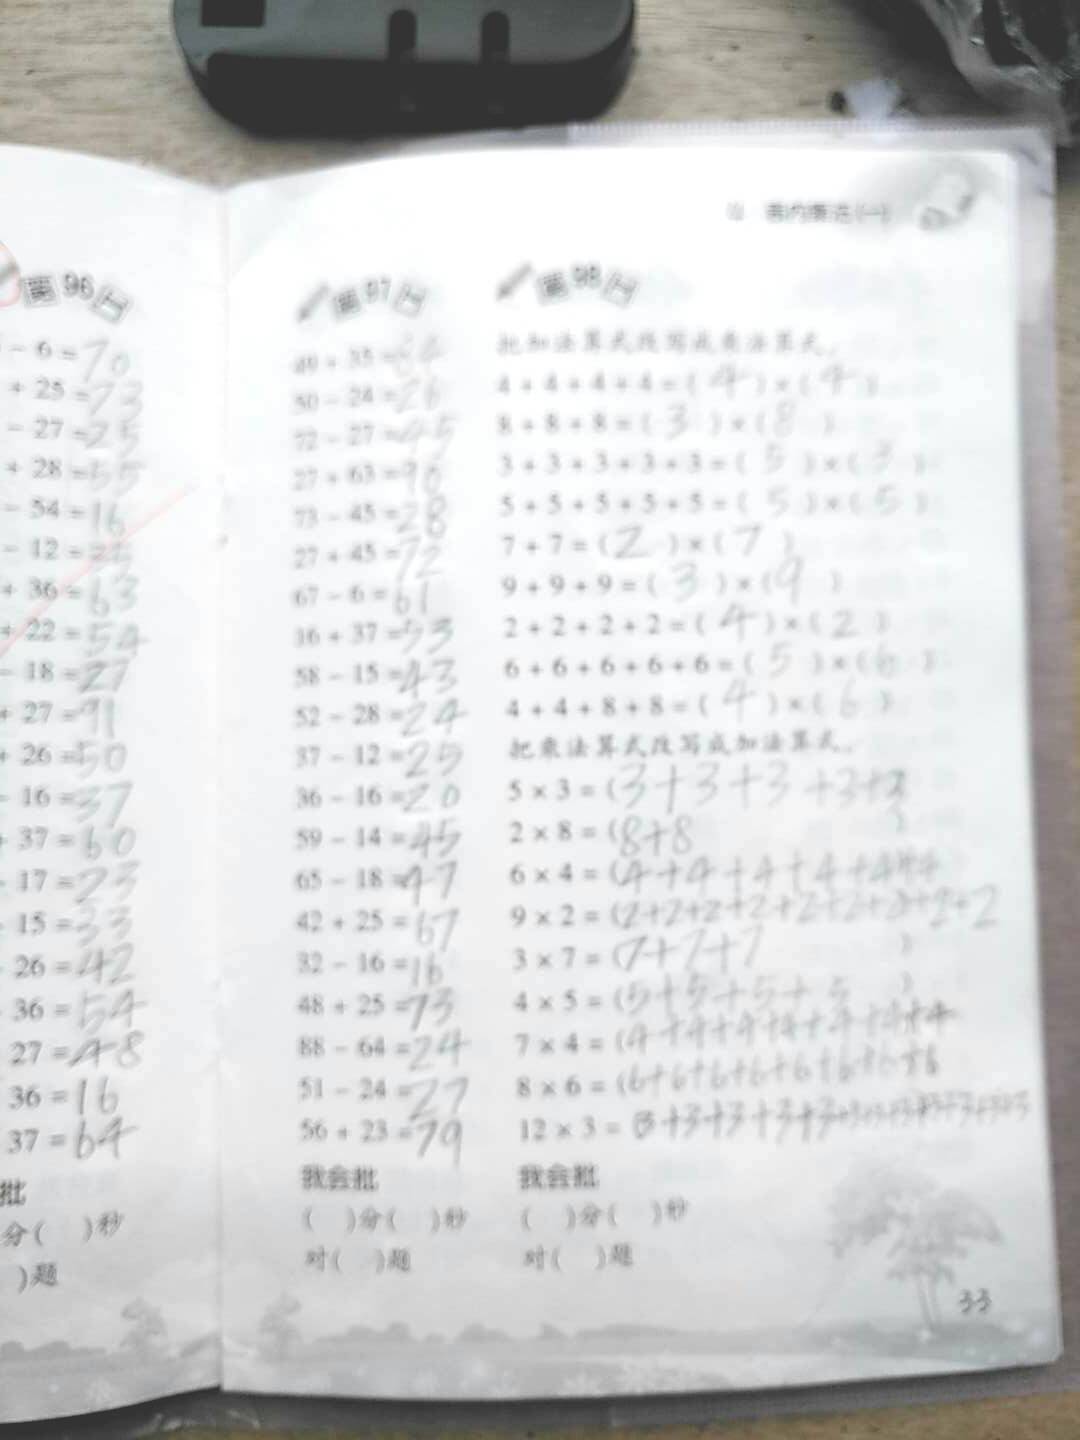 第96日
- 6 = 70
+ 25 = 73
- 27 = 25
+ 28 = 55
- 54 = 16
- 12 =
+ 36 = 63
+ 22 = 54
- 18 = 27
+ 27 = 91
+ 26 = 50
- 16 = 37
37 = 60
17 = 23
15 = 33
26 = 42
36 = 54
27 = 48
36 = 16
37 = 64
批
分( )秒
)题
表内乘法(一)
第97日
49 + 35 = 84
50 - 24 = 26
72 - 27 = 45
27 + 63 = 90
73 - 45 = 28
27 + 45 = 72
67 - 6 = 61
16 + 37 = 53
58 - 15 = 43
52 - 28 = 24
37 - 12 = 25
36 - 16 = 20
59 - 14 = 45
65 - 18 = 47
42 + 25 = 67
32 - 16 = 16
48 + 25 = 73
88 - 64 = 24
51 - 24 = 27
56 + 23 = 79
我会批
( )分( )秒
对( )题
第98日
把加法算式改写成乘法算式。
4 + 4 + 4 + 4 = ( 4 ) × ( 4 )
8 + 8 + 8 = ( 3 ) × ( 8 )
3 + 3 + 3 + 3 + 3 = ( 5 ) × ( 3 )
5 + 5 + 5 + 5 + 5 = ( 5 ) × ( 5 )
7 + 7 = ( 2 ) × ( 7 )
9 + 9 + 9 = ( 3 ) × ( 9 )
2 + 2 + 2 + 2 = ( 4 ) × ( 2 )
6 + 6 + 6 + 6 + 6 = ( 5 ) × ( 6 )
4 + 4 + 8 + 8 = ( 4 ) × ( 6 )
把乘法算式改写成加法算式。
5 × 3 = (3+3+3+3+3
2 × 8 = (8+8 )
6 × 4 = (4+4+4+4+4+4
9 × 2 = (2+2+2+2+2+2+2+2+2
3 × 7 = (7+7+7 )
4 × 5 = (5+5+5+5 )
7 × 4 = (4+4+4+4+4+4+4
8 × 6 = (6+6+6+6+6+6+6+6
12 × 3 = 3+3+3+3+3+3+3+3+3+3+3+3
我会批
( )分( )秒
对( )题
33